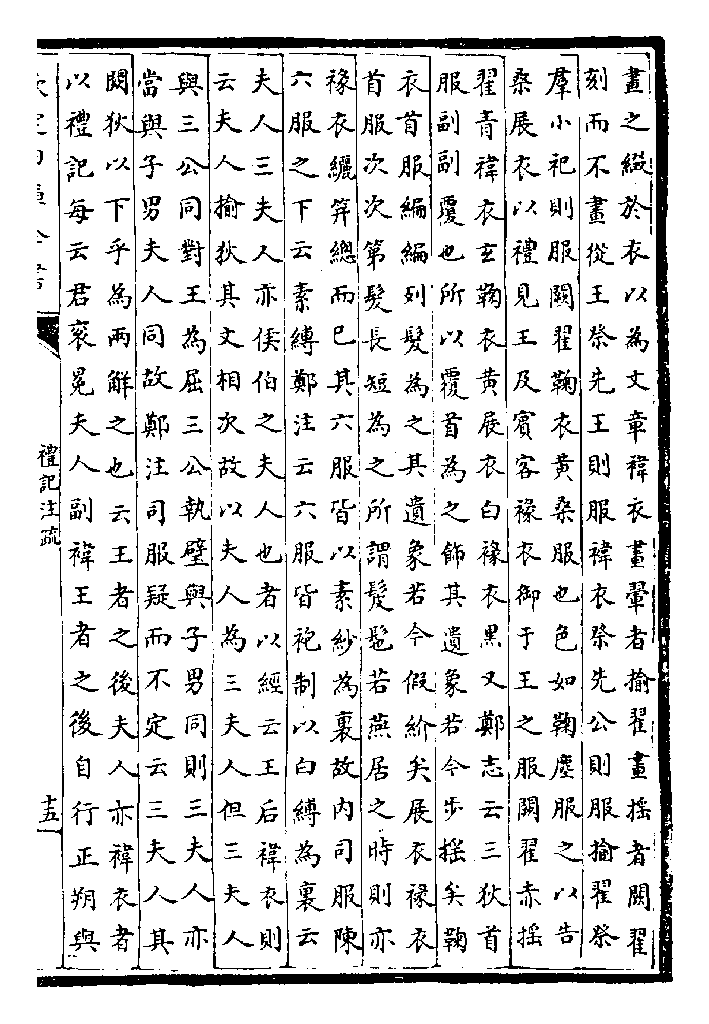 畫之綴於衣以為文章褘衣畫翬者揄翟畫揺者闕翟
刻而不畫從王祭先王則服褘衣祭先公則服揄翟祭
羣小祀則服闕翟鞠衣黄桑服也色如鞠塵服之以告
桑展衣以禮見王及賓客褖衣御于王之服闕翟赤揺
翟青褘衣玄鞠衣黄展衣白褖衣黑又鄭志云三狄首
服副副覆也所以覆首為之飾其遺象若今步揺矣鞠
衣首服編編列髮為之其遺象若今假紒矣展衣褖衣
首服次次第髮長短為之所謂髲髢若燕居之時則亦
褖衣纚笄總而已其六服皆以素紗為裏故内司服陳
六服之下云素縳鄭注云六服皆袍制以白縳為裏云
夫人三夫人亦侯伯之夫人也者以經云王后褘衣則
云夫人揄狄其文相次故以夫人為三夫人但三夫人
與三公同對王為屈三公執璧與子男同則三夫人亦
當與子男夫人同故鄭注司服疑而不定云三夫人其
闕狄以下乎為兩解之也云王者之後夫人亦褘衣者
以禮記每云君衮冕夫人副褘王者之後自行正朔與
欽定四庫全書
禮記注疏
十五